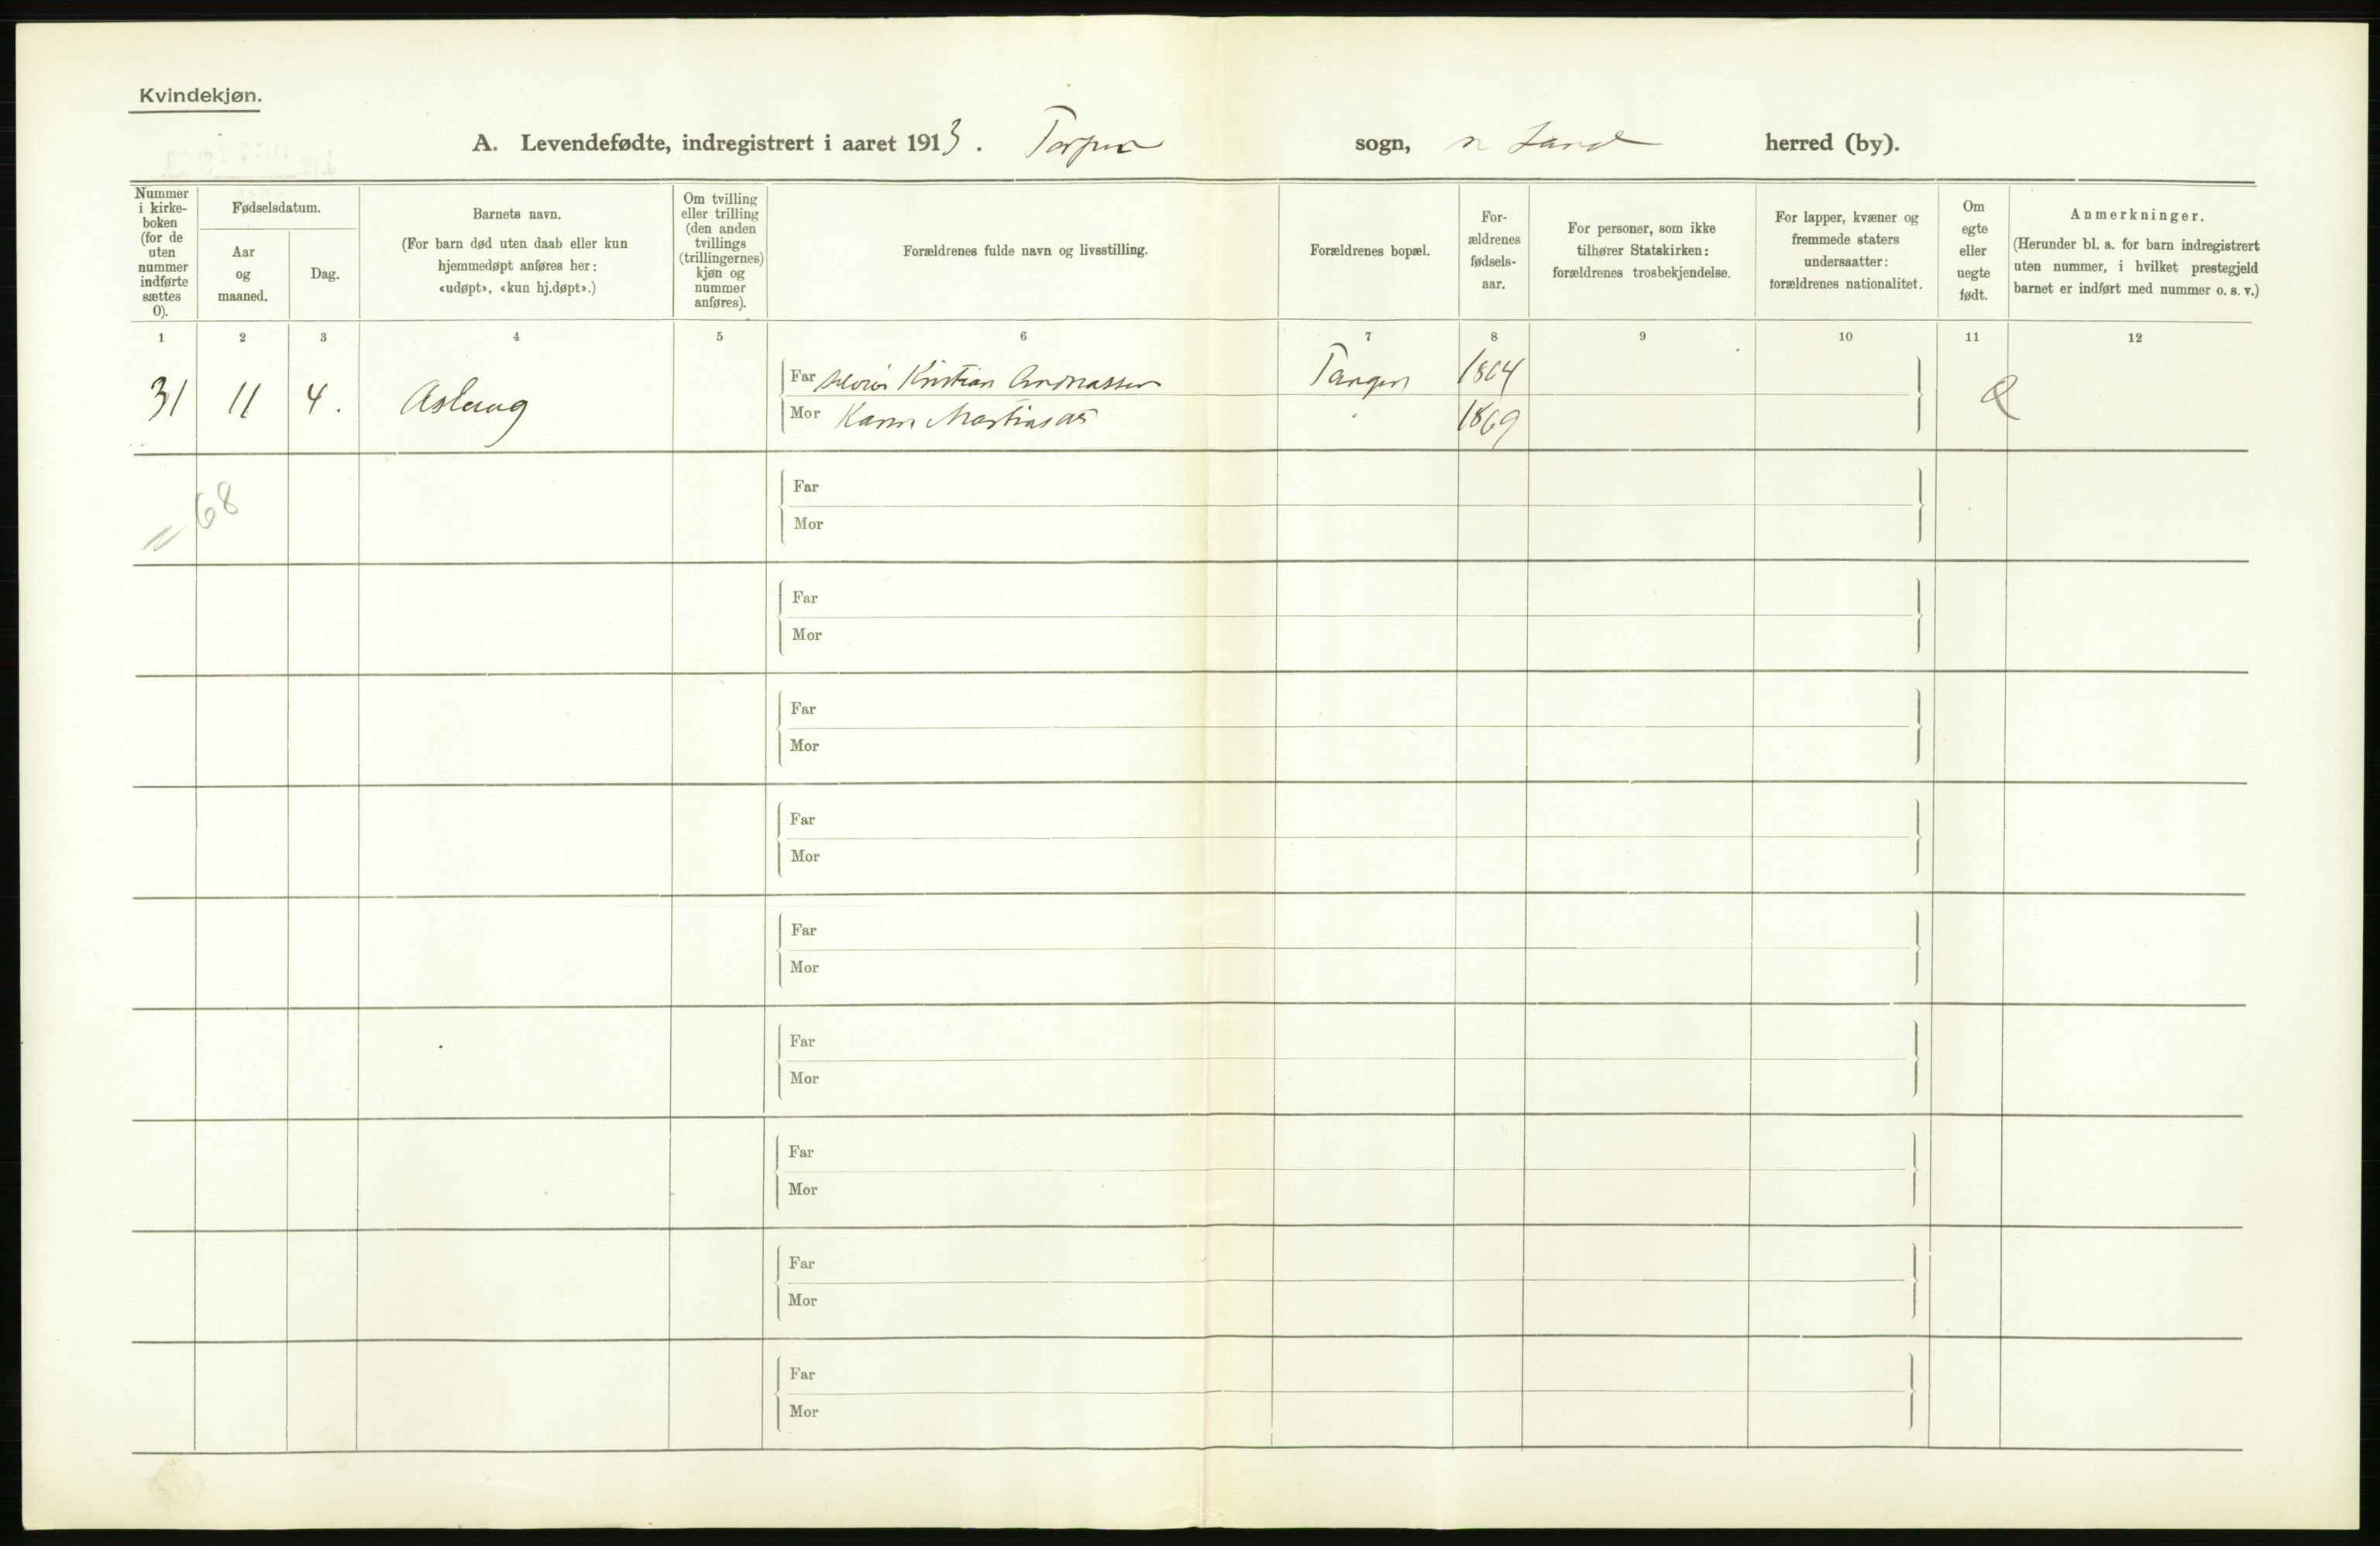 Kvindekjøn.
A. Levendefødte, indregistrert i aaret 1913. Torpen sogn, n Land herred (by).
Nummer i kirke- boken (for de uten nummer indførte sættes 0).
Fødselsdatum.
Aar og maaned.
Dag.
Barnets navn.
(For barn død uten daab eller kun
hjemmedøpt anføres her:
«udøpt», «kun hj.døpt».)
Om tvilling eller trilling (den anden tvillings (trillingernes) kjøn og nummer anføres).
Forældrenes fulde navn og livsstilling.
Forældrenes bopæl.
For- ældrenes fødsels- aar.
For personer, som ikke
tilhører Statskirken:
forældrenes trosbekjendelse.
For lapper, kvæner og
fremmede staters
undersaatter:
forældrenes nationalitet.
Om egte eller uegte født.
Anmerkninger.
(Herunder bl. a. for barn indregistrert
uten nummer, i hvilket prestegjeld
barnet er indført med nummer o. s. v.)
1 2 3 4 5 6 7 8 9 10 11 12
31 11 4. Aslaug
Far Kristian Andreassen Tangen 1864
Mor Karen 1869
68
Far
Mor
Far
Mor
Far
Mor
Far
Mor
Far
Mor
Far
Mor
Far
Mor
Far
Mor
Far
Mor